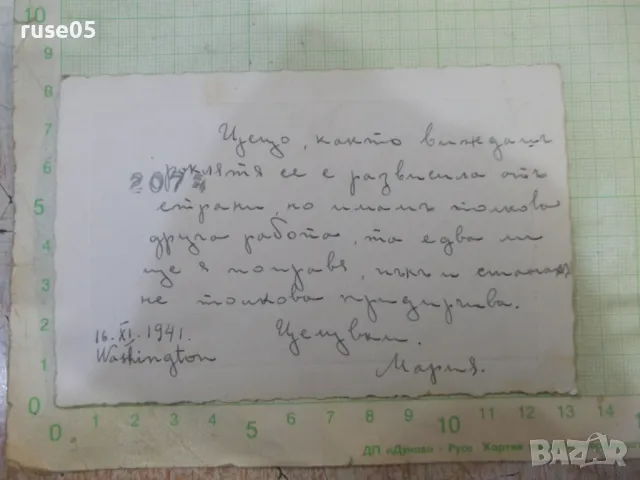 ruse05
Цецо, както виждашъ
2073 роклята се е развисила отъ
страни, но имамъ толкова
друга работа, та едва ли
ще я поправя, пъкъ и станахъ
не толкова придирчива.
Целувам.
Мария.
16.XI.1941.
Washington
10
9
8
7
6
5
4
3
2
1
0
0 1 2 3 4 5 6 7 8 9 10 11 12 13 14
ДП "Дунав" - Русе Хартия
BAZAR